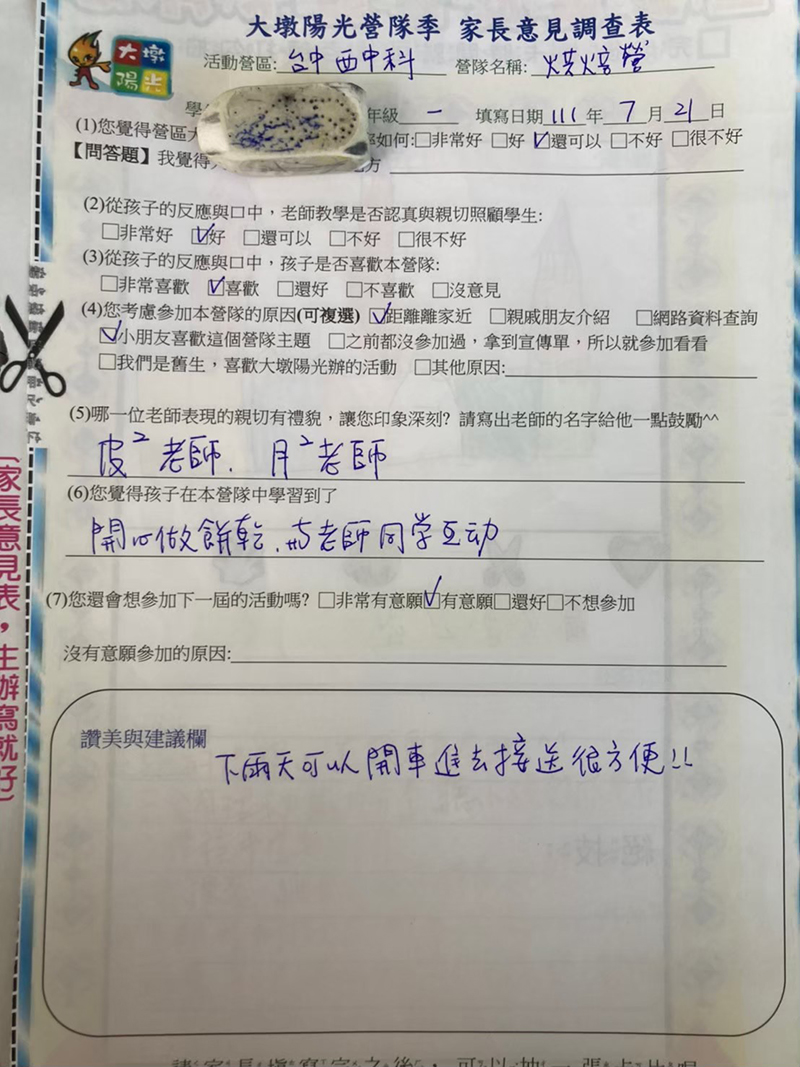 大墩陽光營隊季 家長意見調查表
大墩
陽光
活動營區: 台中西中科 營隊名稱: 烘焙營
年級 一 填寫日期 111 年 7 月 21 日
(1)您覺得營區 如何:□非常好 □好 ☑還可以 □不好 □很不好
【問答題】我覺得 方
(2)從孩子的反應與口中，老師教學是否認真與親切照顧學生:
□非常好 ☑好 □還可以 □不好 □很不好
(3)從孩子的反應與口中，孩子是否喜歡本營隊:
□非常喜歡 ☑喜歡 □還好 □不喜歡 □沒意見
(4)您考慮參加本營隊的原因(可複選) ☑距離離家近 □親戚朋友介紹 □網路資料查詢
☑小朋友喜歡這個營隊主題 □之前都沒參加過，拿到宣傳單，所以就參加看看
□我們是舊生，喜歡大墩陽光辦的活動 □其他原因:
(5)哪一位老師表現的親切有禮貌，讓您印象深刻? 請寫出老師的名字給他一點鼓勵^^
皮² 老師. 月² 老師
(6)您覺得孩子在本營隊中學習到了
開心做餅乾.與老師同学互动
(7)您還會想參加下一屆的活動嗎? □非常有意願☑有意願□還好□不想參加
沒有意願參加的原因:
讚美與建議欄
下雨天可以開車進去接送很方便!!
(家長意見表，主辦寫就好)